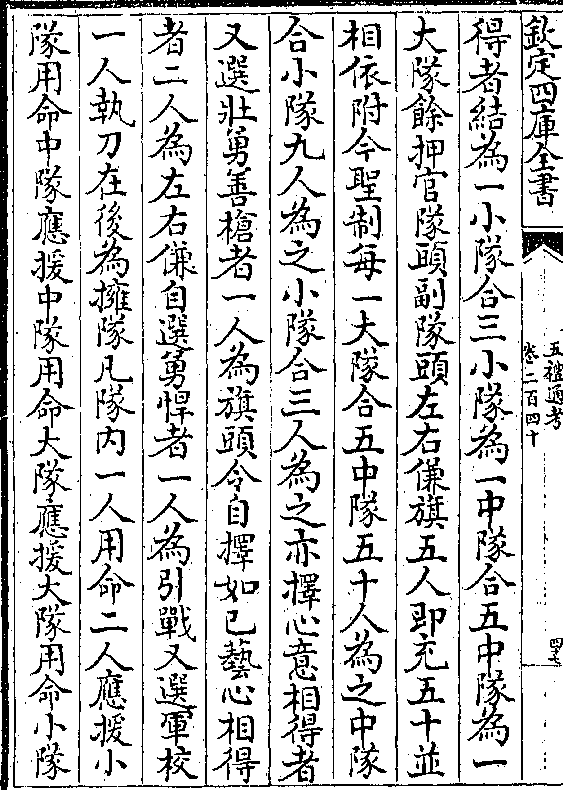 欽定四庫全書
五禮通考
卷二百四十
四七
得者結為一小隊合三小隊為一中隊合五中隊為一
大隊餘押官隊頭副隊頭左右傔旗五人即充五十並
相依附今聖制每一大隊合五中隊五十人為之中隊
合小隊九人為之小隊合三人為之亦擇心意相得者
又選壯勇善槍者一人為旗頭令自擇如已藝心相得
者二人為左右傔自選勇悍者一人為引戰又選軍校
一人執刀在後為擁隊凡隊内一人用命二人應援小
隊用命中隊應援中隊用命大隊應援大隊用命小隊